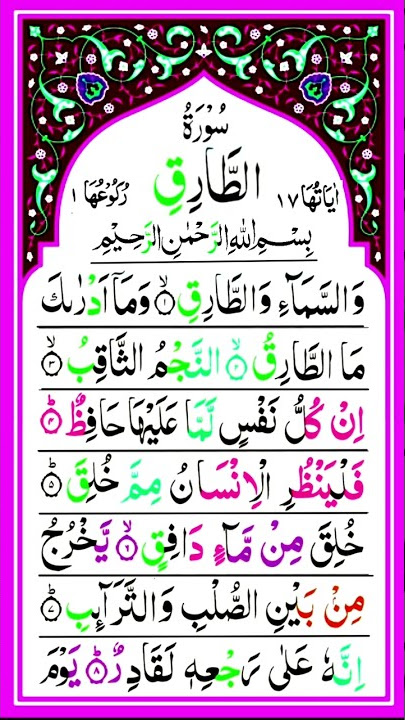 سُوْرَةُ
اٰيَاتُهَا ١٧ الطَّارِقِ رُكُوْعُهَا ١
بِسْمِ اللّٰهِ الرَّحْمٰنِ الرَّحِيْمِ
وَالسَّمَآءِ وَالطَّارِقِ ۙ﴿١﴾ وَمَاۤ اَدْرٰىكَ
مَا الطَّارِقُ ۙ﴿٢﴾ النَّجْمُ الثَّاقِبُ ۙ﴿٣﴾
اِنْ كُلُّ نَفْسٍ لَّمَّا عَلَيْهَا حَافِظٌ ؕ﴿٤﴾
فَلْيَنْظُرِ الْاِنْسَانُ مِمَّ خُلِقَ ؕ﴿٥﴾
خُلِقَ مِنْ مَّآءٍ دَافِقٍ ۙ﴿٦﴾ يَّخْرُجُ
مِنْۢ بَيْنِ الصُّلْبِ وَالتَّرَآئِبِ ؕ﴿٧﴾
اِنَّهٗ عَلٰى رَجْعِهٖ لَقَادِرٌ ؕ﴿٨﴾ يَوْمَ